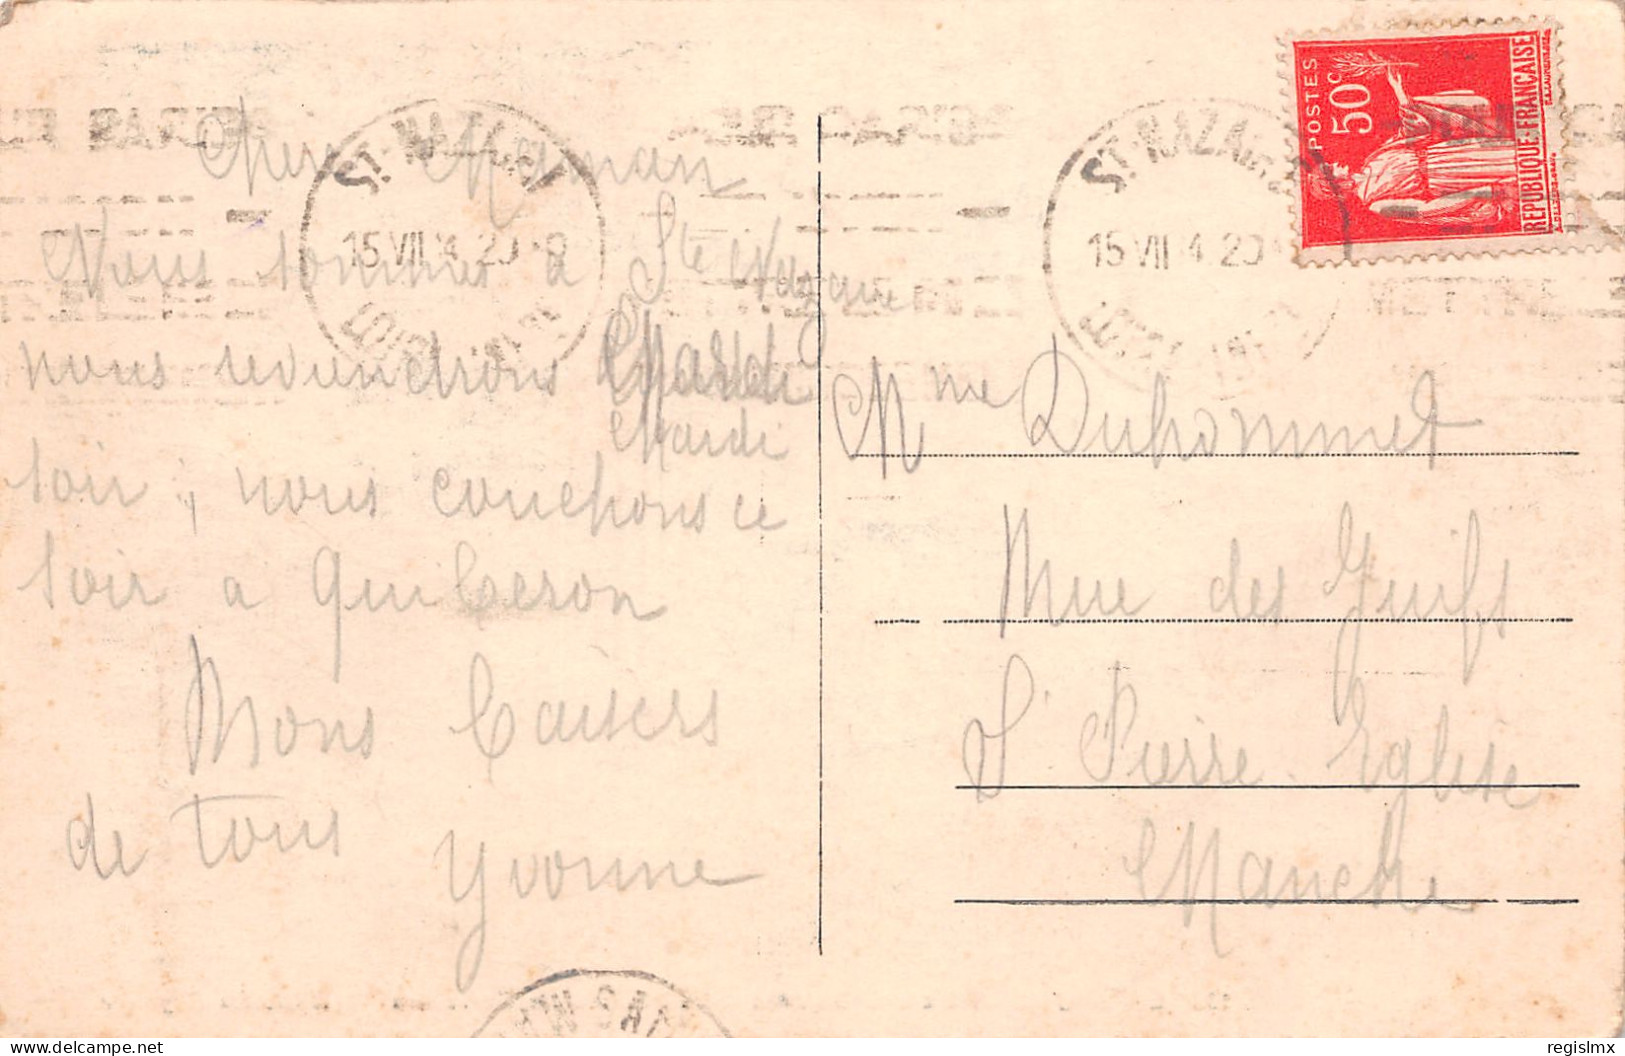 Chère Maman
Nous sommes à St Nazaire
nous reviendrons Mardi
Mardi
soir, nous couchons ce
soir a Quiberon
Mons baisers
de tous
Yvonne
Mme Duhommet
Rue des Juifs
St Pierre Eglise
Manche
POSTES 50c
REPUBLIQUE FRANÇAISE
ST NAZAIRE
15 VII 20
ST NAZAIRE
15 VII 20
delcampe.net
regislmx